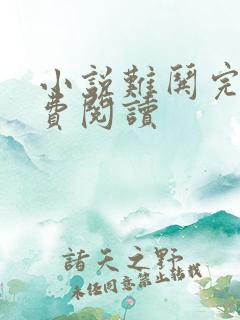 小說難鬨完
費閱讀
諸天之野
未經同意禁止轉載